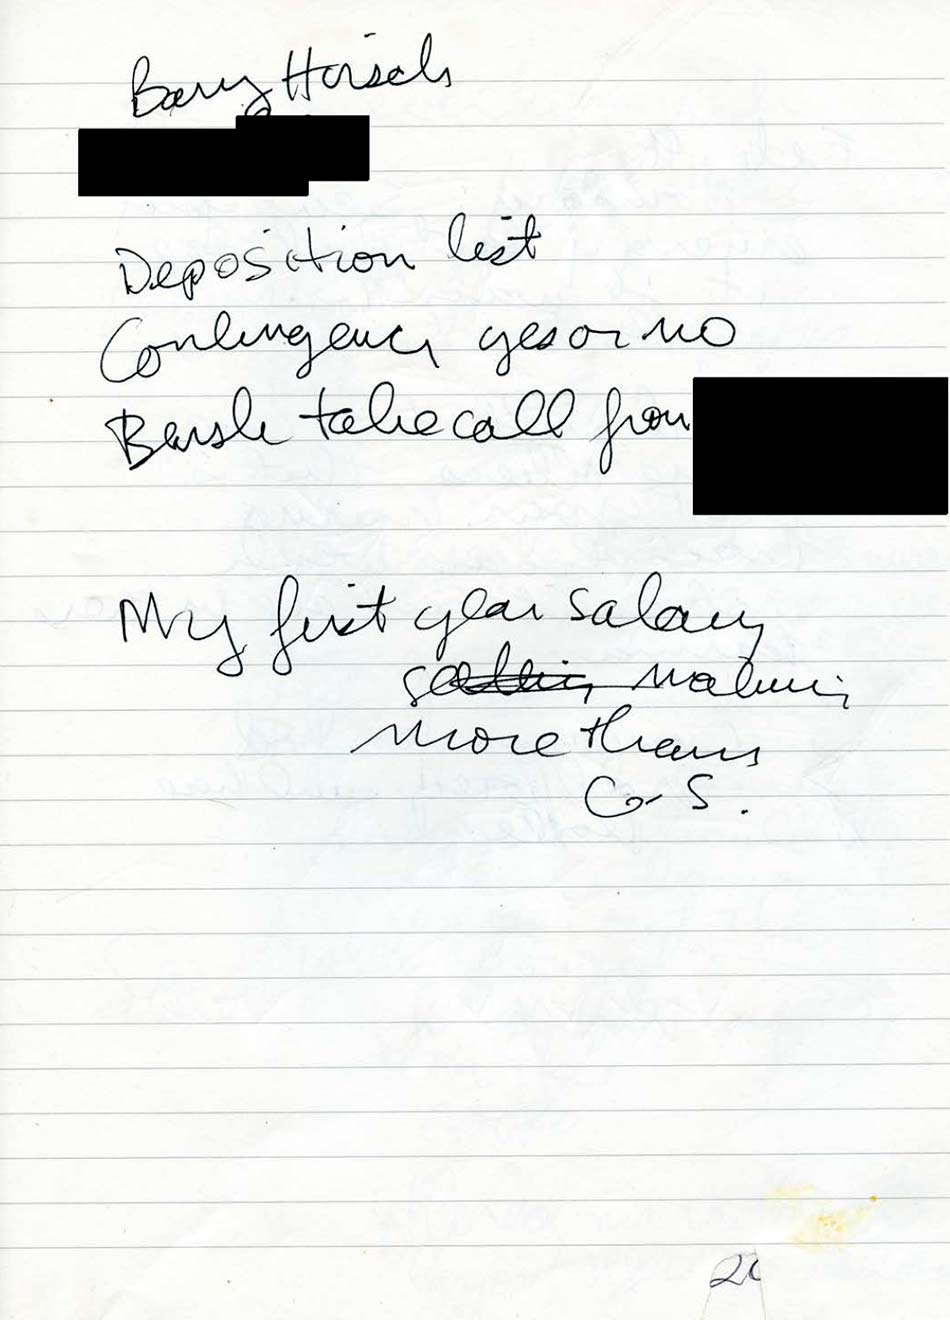 Barry Horisch
Deposition list
Contingency yes or no
take call from
My first year salary
making
more than
G. S.